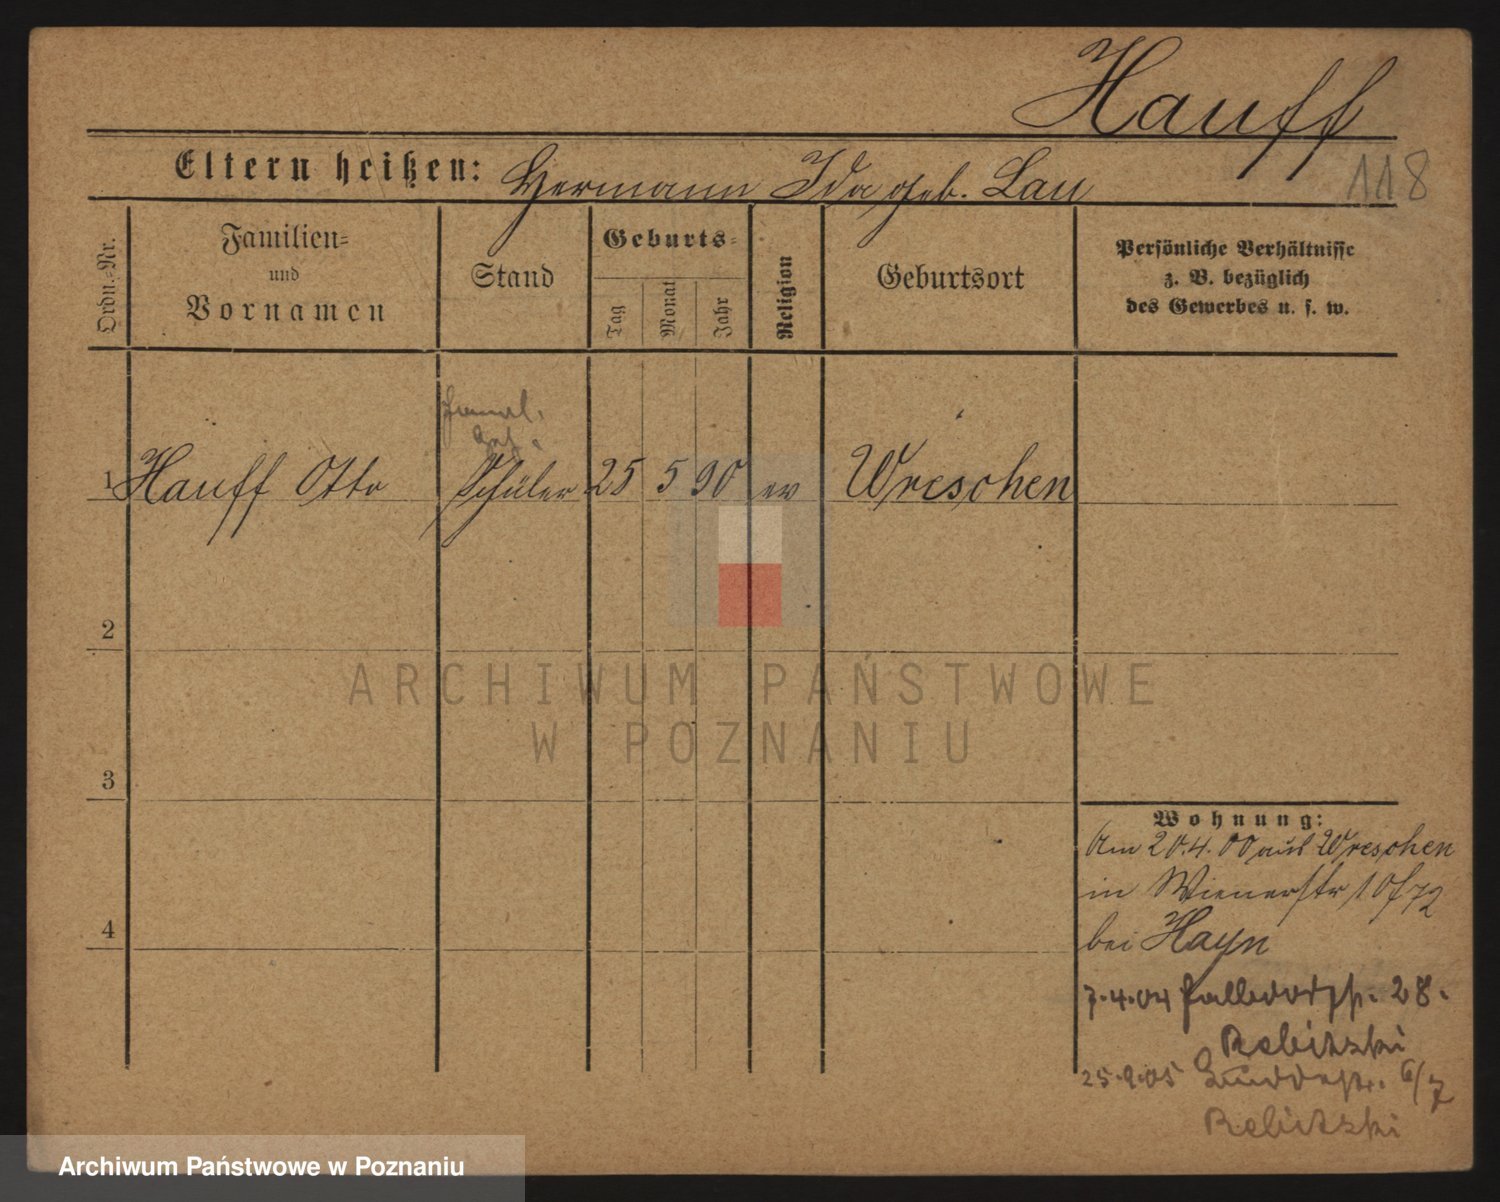 Hauff
118
Eltern heißen: Hermann Ida geb. Lau
Ordn.-Nr.
Familien-
und
Vornamen
Stand
Geburts-
Tag
Monat
Jahr
Religion
Geburtsort
Persönliche Verhältnisse
z. B. bezüglich
des Gewerbes u. s. w.
1 Hauff Otto Schüler 25 5 90 ev Wreschen
2
3
4
Wohnung:
Am 20.4.00 aus Wreschen
in Wienerstr 10
bei Hayn
7.4.04 28.
Rebitzki
25.9.05 6/7
Rebitzki
ARCHIWUM PAŃSTWOWE
W POZNANIU
Archiwum Państwowe w Poznaniu